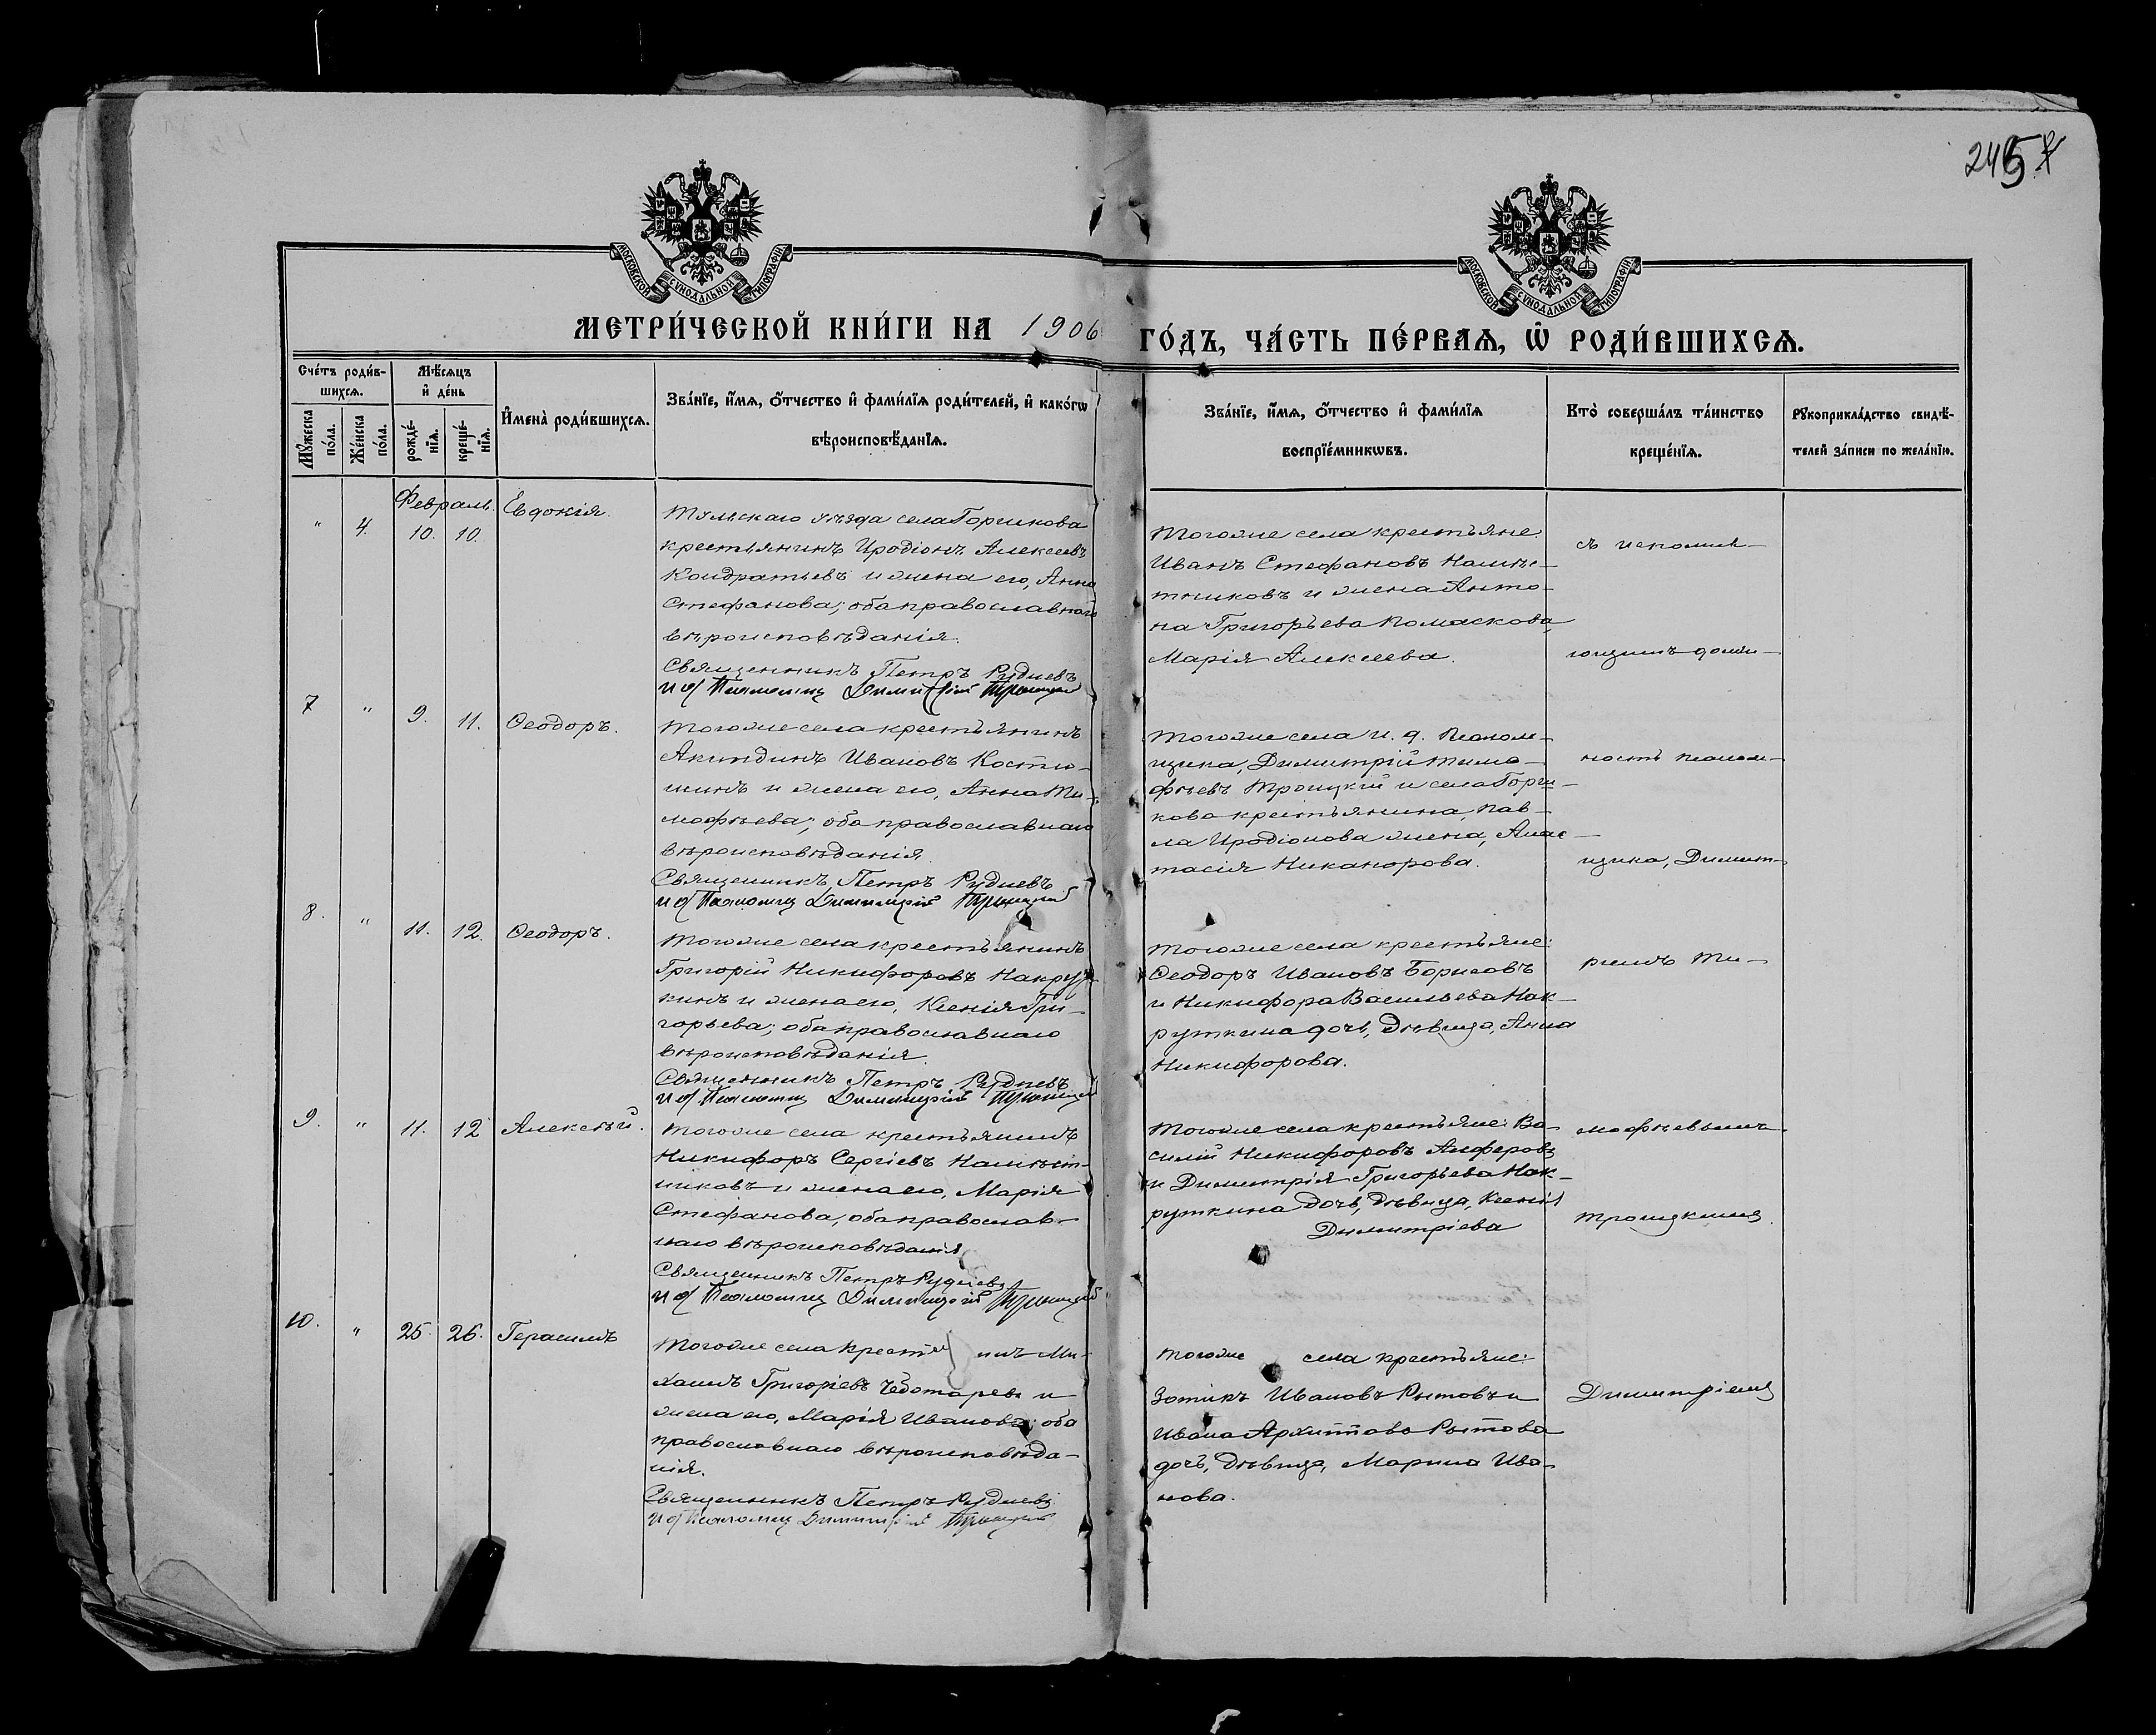 245
МОСКОВСКОЙ СѴНОДАЛЬНОЙ ТИПОГРАФІИ
МОСКОВСКОЙ СѴНОДАЛЬНОЙ ТИПОГРАФІИ
МЕТРИ́ЧЕСКОЙ КНИ́ГИ НА 1906 ГО́ДЪ, ЧА́СТЬ ПЕ́РВАѦ, Ѡ҆ РОДИ́ВШИХСѦ.
Сче́тъ роди́в-
шихсѧ.
Мꙋ́жеска по́ла.
Же́нска по́ла.
Мѣ́сѧцъ
и҆ де́нь
рожде́-
нїѧ.
креще́-
нїѧ.
И҆мена̀ роди́вшихсѧ.
Зва́нїе, и҆́мѧ, ѻ҆́тчество и҆ фами́лїѧ роди́телей, и҆ како́гѡ
вѣроисповѣ́данїѧ.
Зва́нїе, и҆́мѧ, ѻ҆́тчество и҆ фами́лїѧ
воспрїе́мникѡвъ.
Кто̀ соверша́лъ та́инство
креще́нїѧ.
Рꙋкоприкла́дство свидѣ́-
телей за́писи по жела́нїю.
Февраль.
" 4. 10. 10. Евдокія.
Тульскаго уѣзда села Горшкова
крестьянинъ Иродіонъ Алексеевъ
Кондратьевъ и жена его, Анна
Стефанова; оба православнаго
вѣроисповѣданія.
Священникъ Петръ Рудневъ
И д Псаломщ Димитрій Троицкій
Тогоже села крестьяне:
Иванъ Стефановъ Намѣс-
тниковъ и жена Анто-
на Григорьева Помаскова,
Марія Алексеева.
съ исполня-
ющимъ долж-
7 " 9. 11. Ѳеодоръ.
Тогоже села крестьянинъ
Акиндинъ Ивановъ Костю-
шинъ и жена его, Анна Ти-
мофѣева; оба православнаго
вѣроисповѣданія.
Священникъ Петръ Рудневъ
И д Псаломщ Димитрій Троицкій
Тогоже села и. д. псалом-
щика, Димитрій Тимо-
фѣевъ Троицкій и села Горш-
кова крестьянина, Пав-
ла Иродіонова жена, Анас-
тасія Никанорова.
ность псалом-
щика, Димит-
8. " 11. 12. Ѳеодоръ.
Тогоже села крестьянинъ
Григорій Никифоровъ Накрут-
кинъ и жена его, Ксенія Гри-
горьева; оба православнаго
вѣроисповѣданія.
Священникъ Петръ Рудневъ
И д Псаломщ Димитрій Троицкій
Тогоже села крестьяне:
Ѳеодоръ Ивановъ Борисовъ
и Никифора Васильева Нак-
руткина дочь, дѣвица, Анна
Никифорова.
ріемъ Ти-
9. " 11. 12 Алексѣй.
Тогоже села крестьянинъ
Никифоръ Сергіевъ Намѣст-
никовъ и жена его, Марія
Стефанова, оба православ-
наго вѣроисповѣданія
Священникъ Петръ Рудневъ
И д Псаломщ Димитрій Троицкій
Тогоже села крестьяне: Ва-
силій Никифоровъ Алферовъ
и Димитрія Григорьева Нак-
руткина дочь, дѣвица, Ксенія
Димитріева
мофѣевымъ
Троицкимъ.
10. " 25. 26. Герасимъ
Тогоже села крестья нинъ Ми-
хаилъ Григоріевъ Чеботаревъ и
жена его, Марія Иванова; оба
православнаго вѣроисповѣда-
нія.
Священникъ Петръ Рудневъ
И д Псаломщ Димитрій Троицкій
Тогоже села крестьяне:
Зотикъ Ивановъ Рытовъ и
Ивана Архиппова Рытова
дочь, дѣвица, Марина Ива-
нова.
Димитріемъ